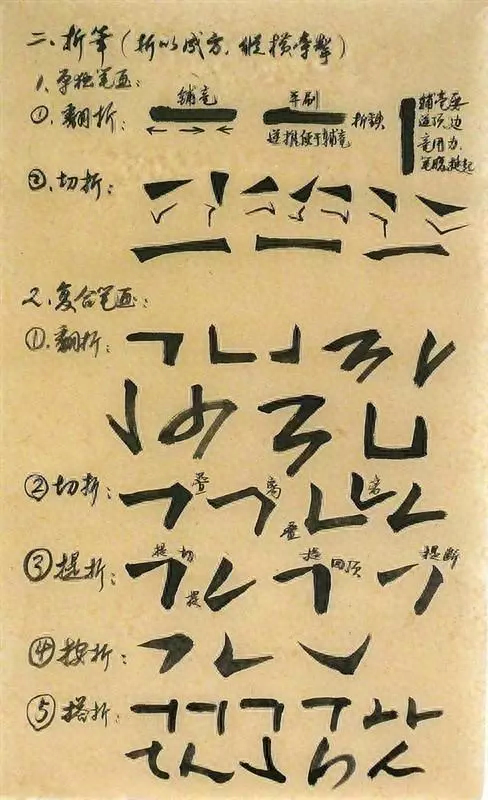 二、折笔(折以成方,纵横牵掣)
1、单独笔画:
①、翻折: 铺毫 平刷 折锋 铺毫要
逆推便于铺毫 逆顶,边
毫用力,
笔腹提起
②、切折:
2、复合笔画:
①、翻折:
②切折: 叠 离 叠 离
③提折: 提 切 提 提 回顶 提断
④按折:
⑤搭折: